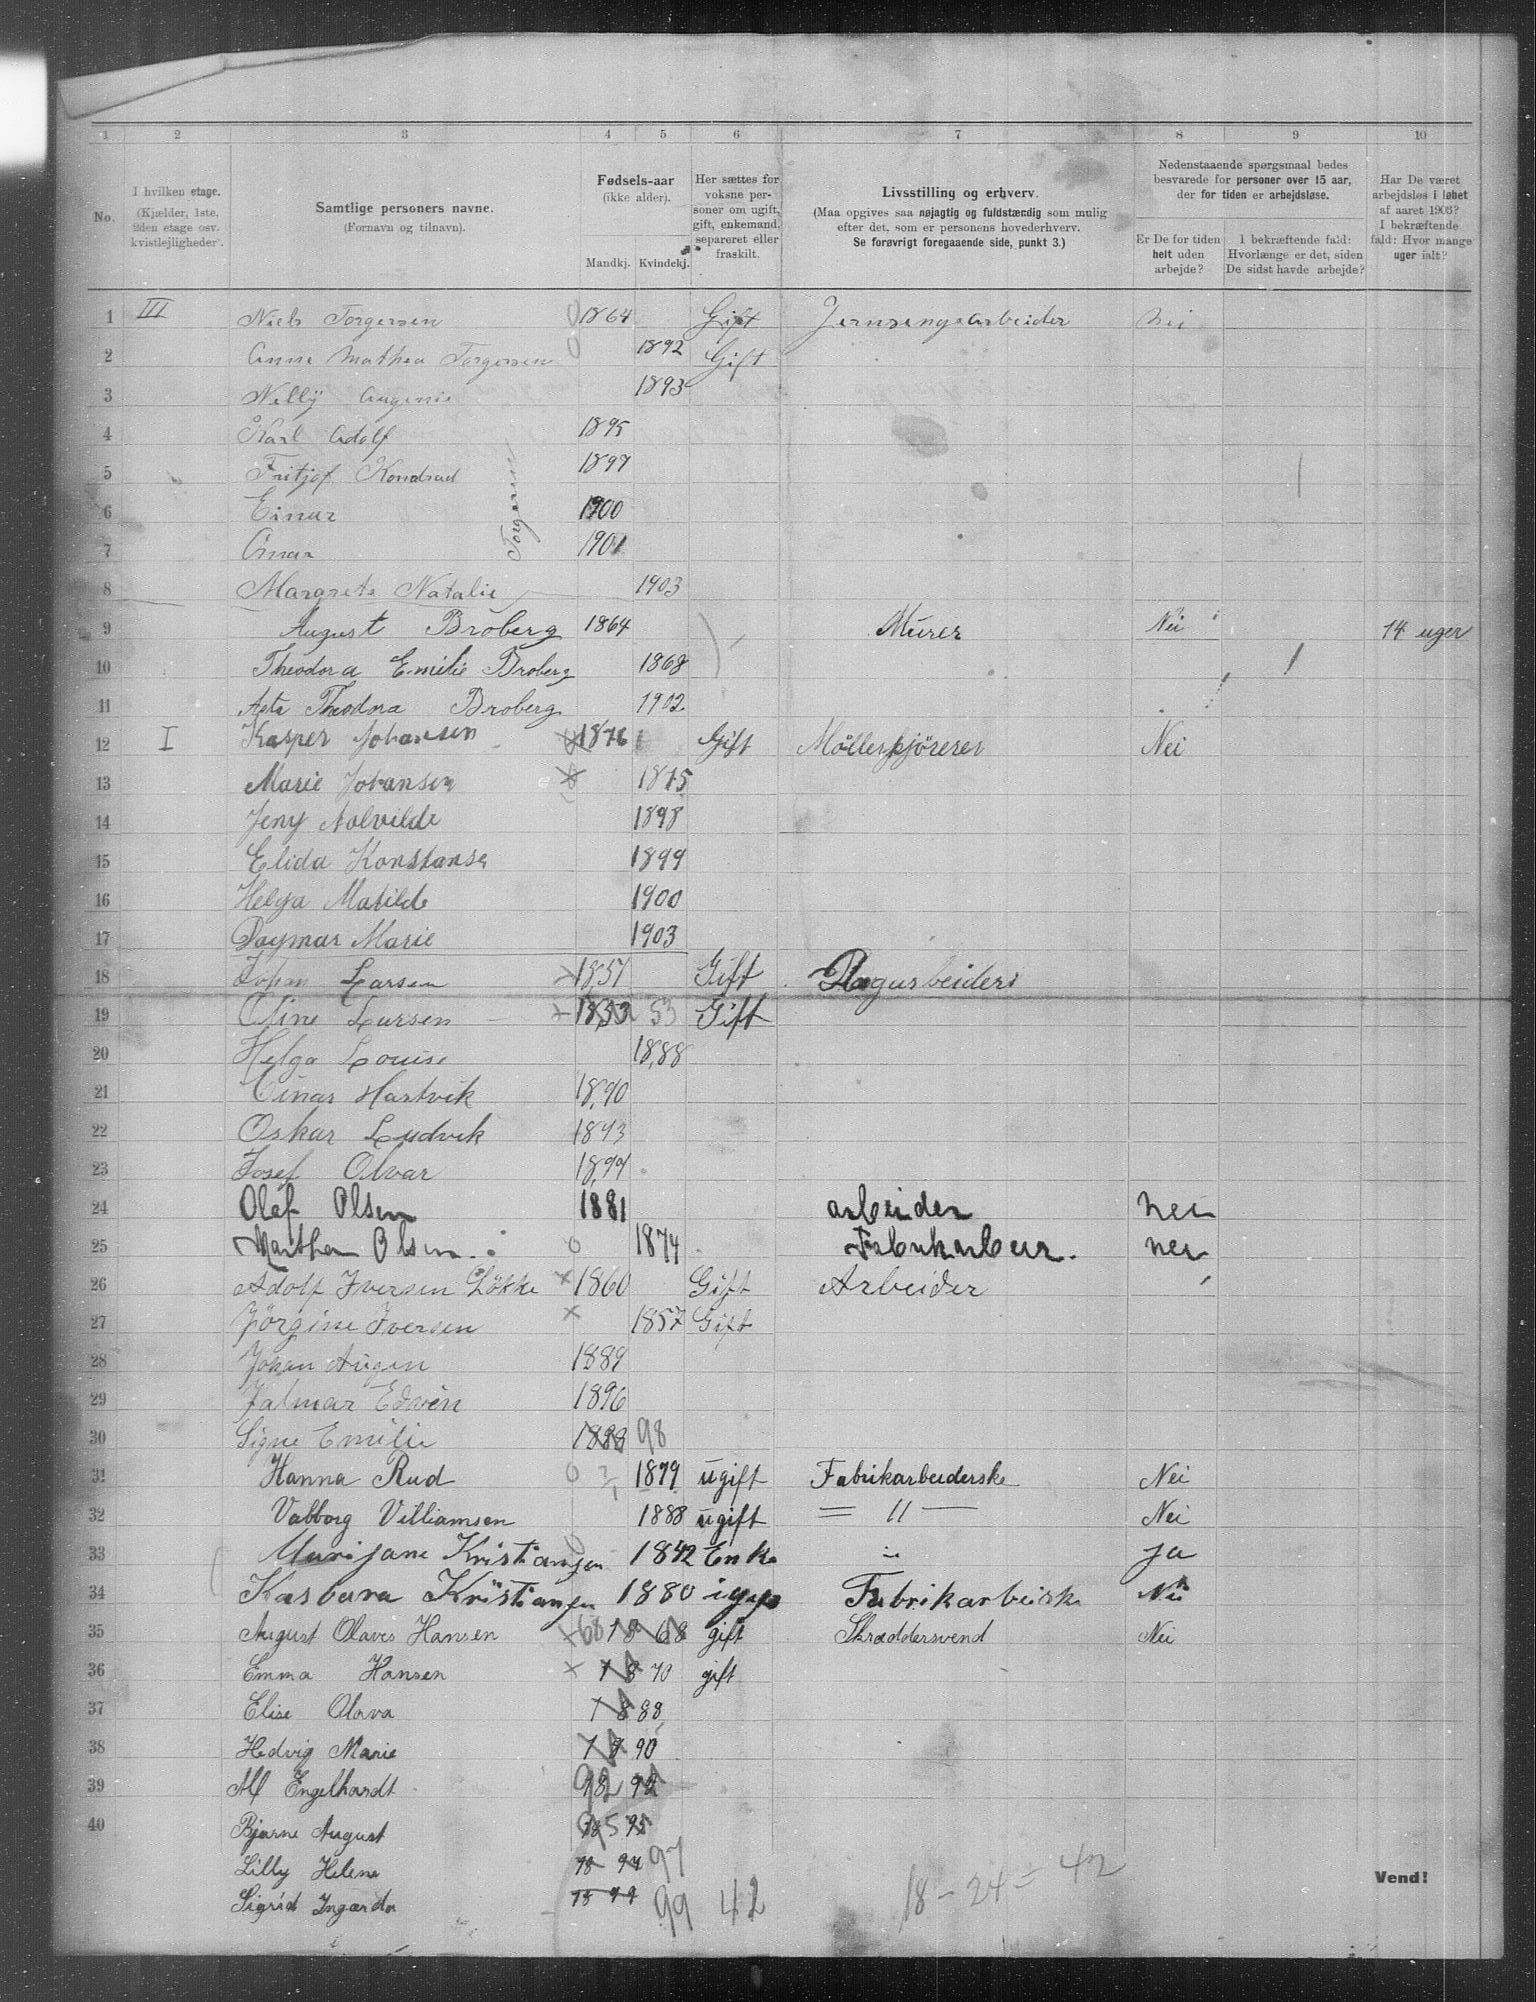 1 2 3 4 5 6 7 8 9 10
No. I hvilken etage. (Kjælder, 1ste, 2den etage osv. kvistlejligheder). Samtlige personers navne. (Fornavn og tilnavn). Fødsels-aar (ikke alder). Mandkj. Kvindekj. Her sættes for voksne personer om ugift, gift, enkemand, separeret eller fraskilt. Livsstilling og erhverv. (Maa opgives saa nøjagtig og fuldstændig som mulig efter det, som er personens hovederhverv. Se forøvrigt foregaaende side, punkt 3.) Nedenstaaende spørgsmaal bedes besvarede for personer over 15 aar, der for tiden er arbejdsløse. Er De for tiden helt uden arbejde? I bekræftende fald: Hvorlænge er det, siden De sidst havde arbejde? Har De været arbejdsløs i løbet af aaret 1903? I bekræftende fald: Hvor mange uger ialt?
1 III Niels Torgersen 1864 Gift nei
2 Anne Mathea Torgersen 1892 Gift
3 Nelly 1893
4 Karl Adolf 1895
5 Fritjof Kondrad 1897
6 Einar 1900
Torgersen
7 1901
8 Margrete Natalie 1903
9 August Broberg 1864 Murer Nei 14 uger
10 Theodora Emilie Broberg 1868
11 Theodora Broberg 1902
12 I Kasper Johansen 1876 Gift Möllerkjörerer Nei
13 Marie Johansen 1875
14 Jeny 1898
15 Elida Konstanse 1899
16 Helga Matilde 1900
17 Dagmar Marie 1903
18 Johan Larsen 1857 Gift
19 Oline Larsen 1853 53 Gift
20 Helga Louise 1888
21 Einar Hartvik 1890
22 Oskar Ludvik 1893
23 Josef Olvar
24 Olaf Olsen 1881 arbeider nei
25 Marthea Olsen 1874 nei
26 Adolf Iversen Lökke 1860 Gift Arbeider
27 Jörgine Iversen 1857 Gift
28 Johan 1889
29 Jalmar Edvin 1896
30 Signe Emilie 98
31 Hanna Rud 1879 ugift Fabrikarbeiderske Nei
32 Valborg Villiamsen 1888 ugift = 11 — Nei
33 Marijane Kristiansen 1842 Enke ja
34 Kristiansen 1880 Nei
35 August Olaves Hansen 68 18 68 gift Skræddersvend Nei
36 Emma Hansen 18 70 gift
37 Elise Olava 18 88
38 Hedvig Marie 18 90
39 Alf Engelhardt 92 92
40 Bjarne August 95 95
Lilly Helene 18 97 97
Sigrid Ingarda 18 99 99 42 18 - 24 = 42
Vend!